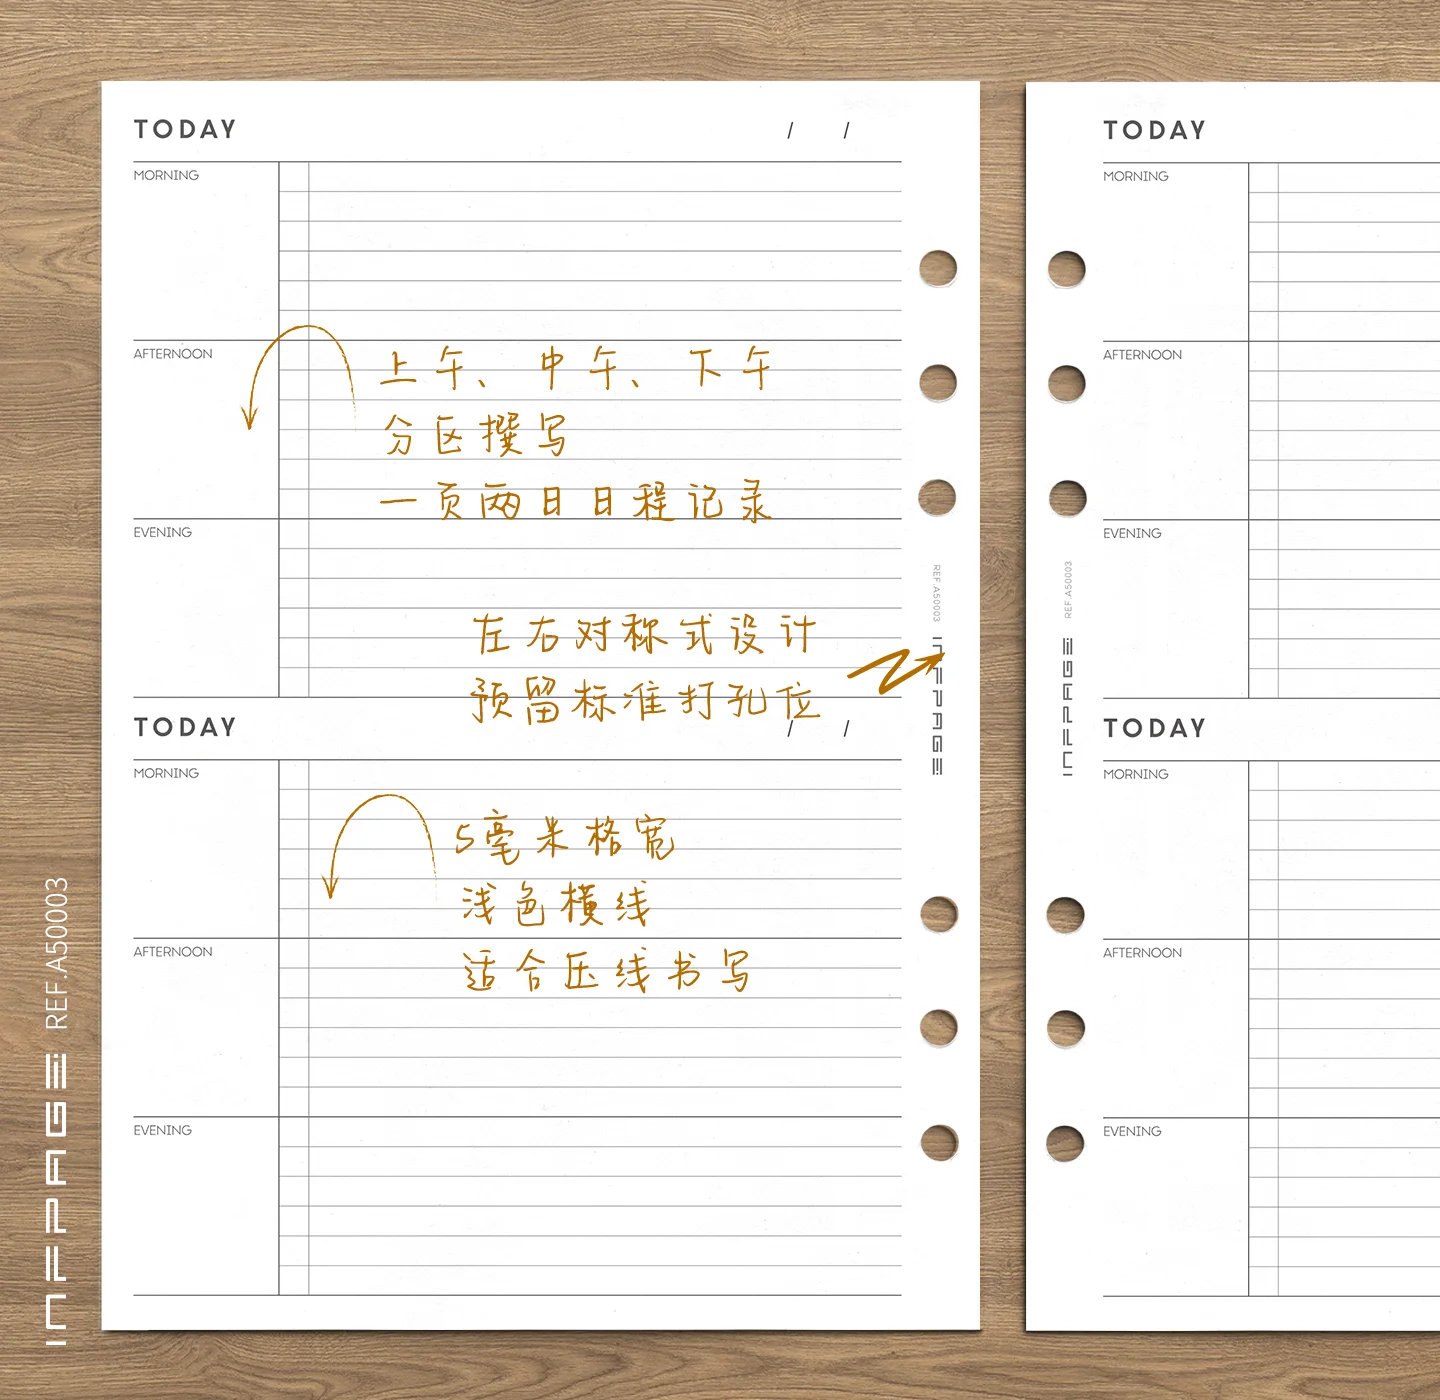 TODAY / /
MORNING
AFTERNOON
上午、中午、下午
分区撰写
一页两日日程记录
EVENING
左右对称式设计
预留标准打孔位
REF.A50003 INFPAGE
TODAY / /
MORNING
5毫米格宽
浅色横线
AFTERNOON
适合压线书写
EVENING
TODAY
MORNING
AFTERNOON
EVENING
INFPAGE REF.A50003
TODAY
MORNING
AFTERNOON
EVENING
INFPAGE REF.A50003